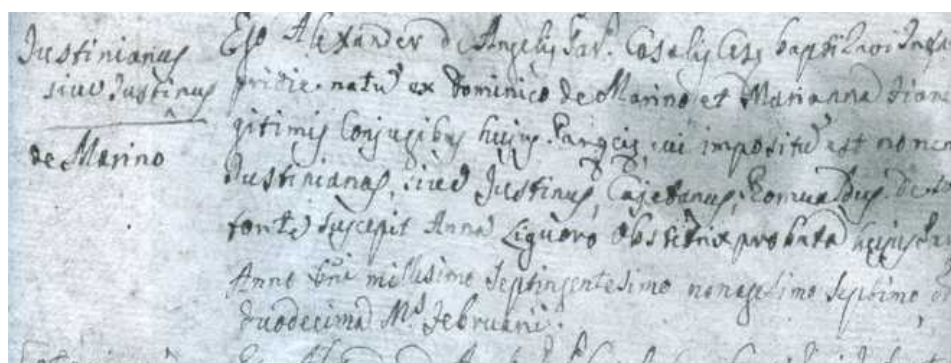 Justinianus
sive Justinus
de Marino
Ego Alexander de Angelis Par.s Casalis Ces. baptizavi Inf
pridie natũ ex Dominico de Marino et Marianna
gitimis Conjugibus hujus Paręcię, cui impositũ est nomen
Justinianus, sive Justinus, Cajetanus, Romualdus. de
fonte suscepit Anna Liguoro Obstetrix probata hujus
Anno Dni millesimo septingentesimo nonagesimo septimo
duodecima Ms. Februarii.